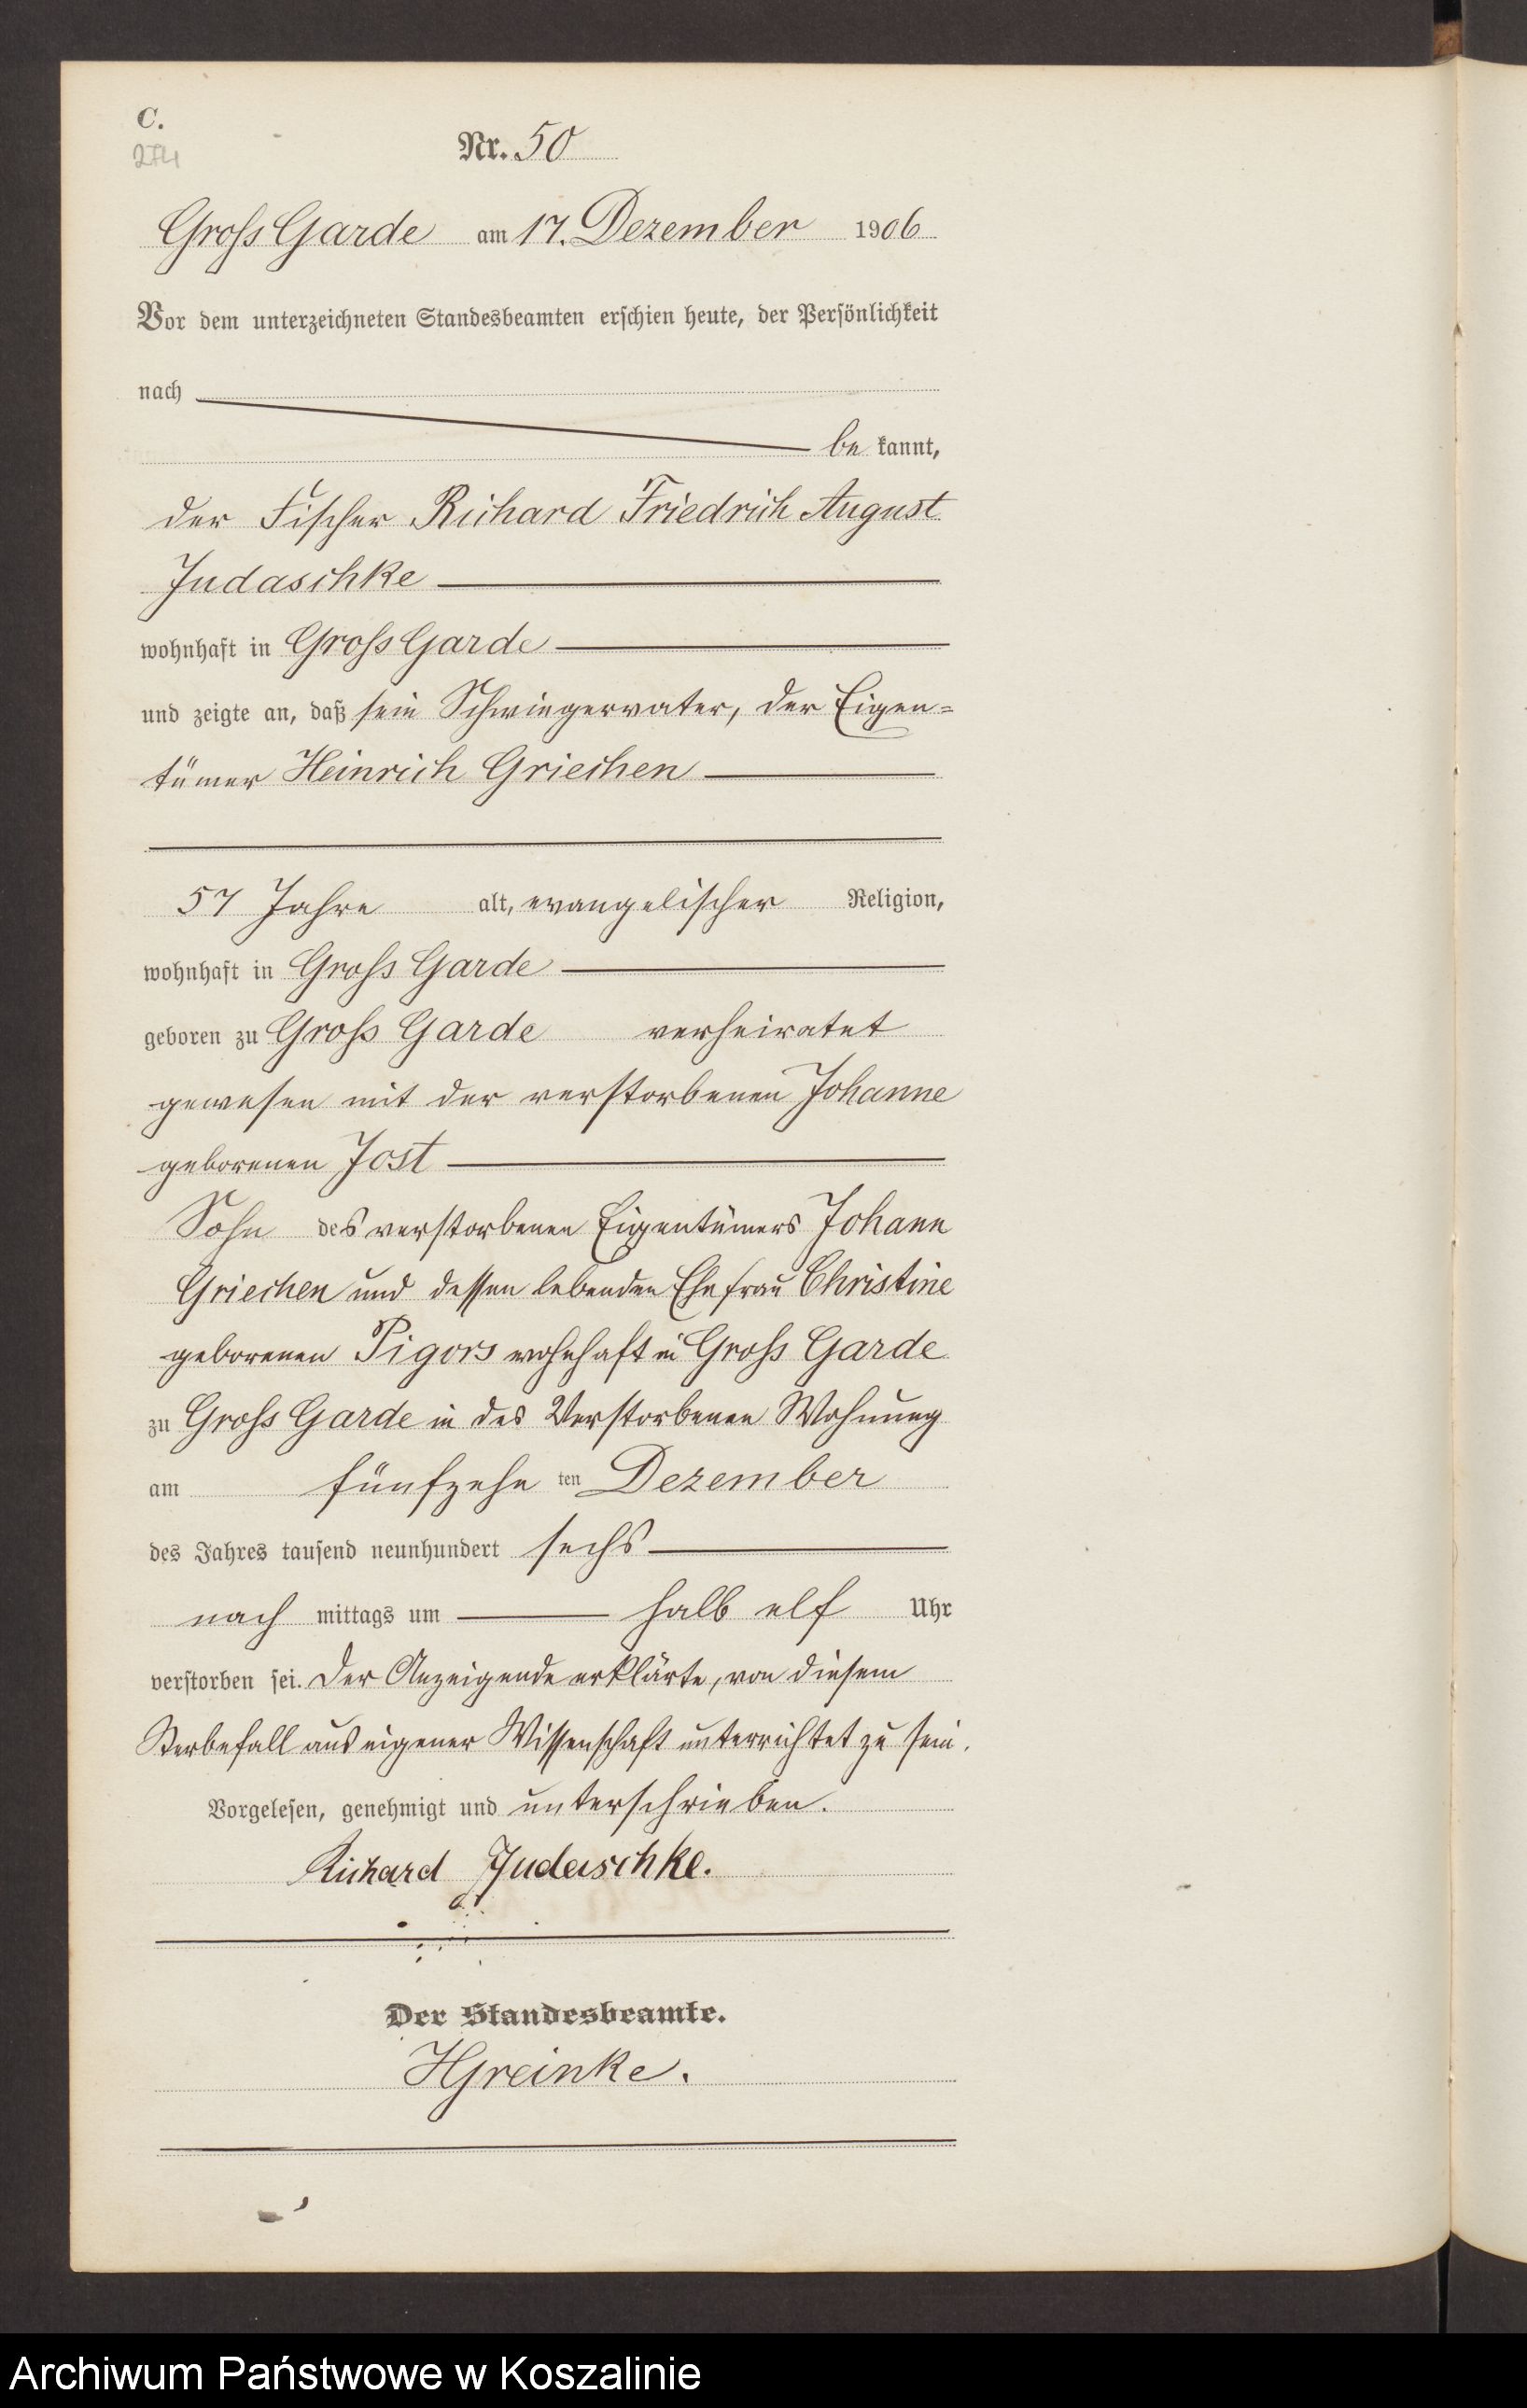 C.
274
Nr. 50
Gross Garde am 17. Dezember 1906
Vor dem unterzeichneten Standesbeamten erschien heute, der Persönlichkeit
nach
be kannt,
der Fischer Richard Friedrich August
Judaschke
wohnhaft in Gross Garde
und zeigte an, daß sein Schwiegervater, der Eigen=
tümer Heinrich Griechen
57 Jahre alt, evangelischer Religion,
wohnhaft in Gross Garde
geboren zu Gross Garde verheiratet
gewesen mit der verstorbenen Johanne
geborenen Jost
Sohn des verstorbenen Eigentümers Johann
Griechen und dessen lebenden Ehefrau Christine
geborenen Pigors wohnhaft in Gross Garde
zu Gross Garde in des Verstorbenen Wohnung
am fünfzehn ten Dezember
des Jahres tausend neunhundert sechs
nach mittags um halb elf Uhr
verstorben sei. Der Anzeigende erklärte, von diesem
Sterbefall aus eigener Wissenschaft unterrichtet zu sein.
Vorgelesen, genehmigt und unterschrieben.
Richard Judaschke.
Der Standesbeamte.
HGreinke.
Archiwum Państwowe w Koszalinie